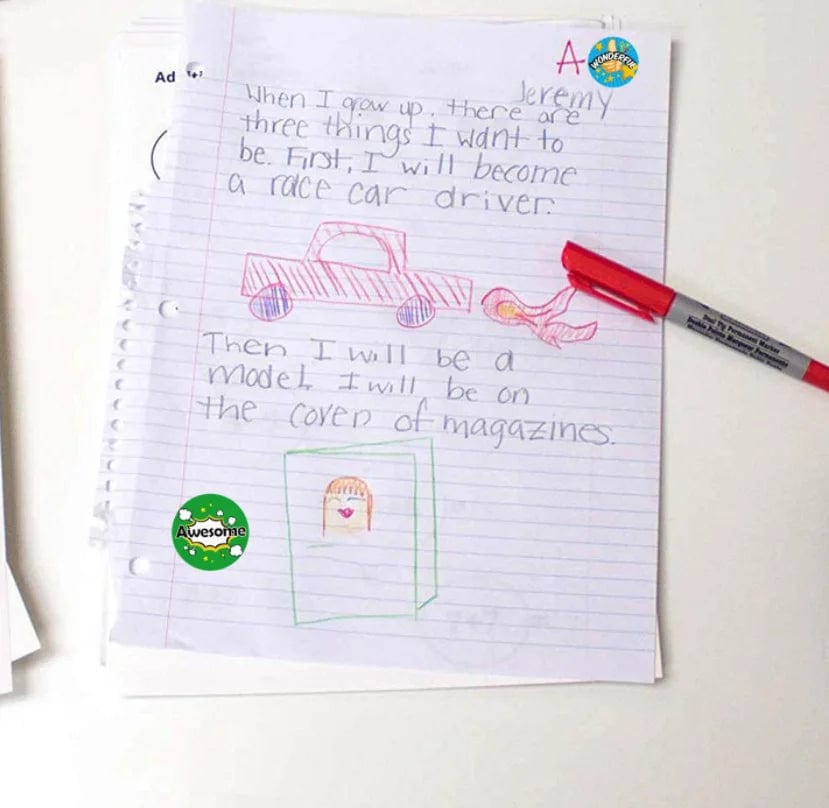 A
WONDERFUL
Jeremy
Ad
When I gow up, there are
three things I want to
be. First, I will become
a race car driver.
Then I will be a
model. I will be on
the cover of magazines.
Awesome
Dual Tip Permanent Marker